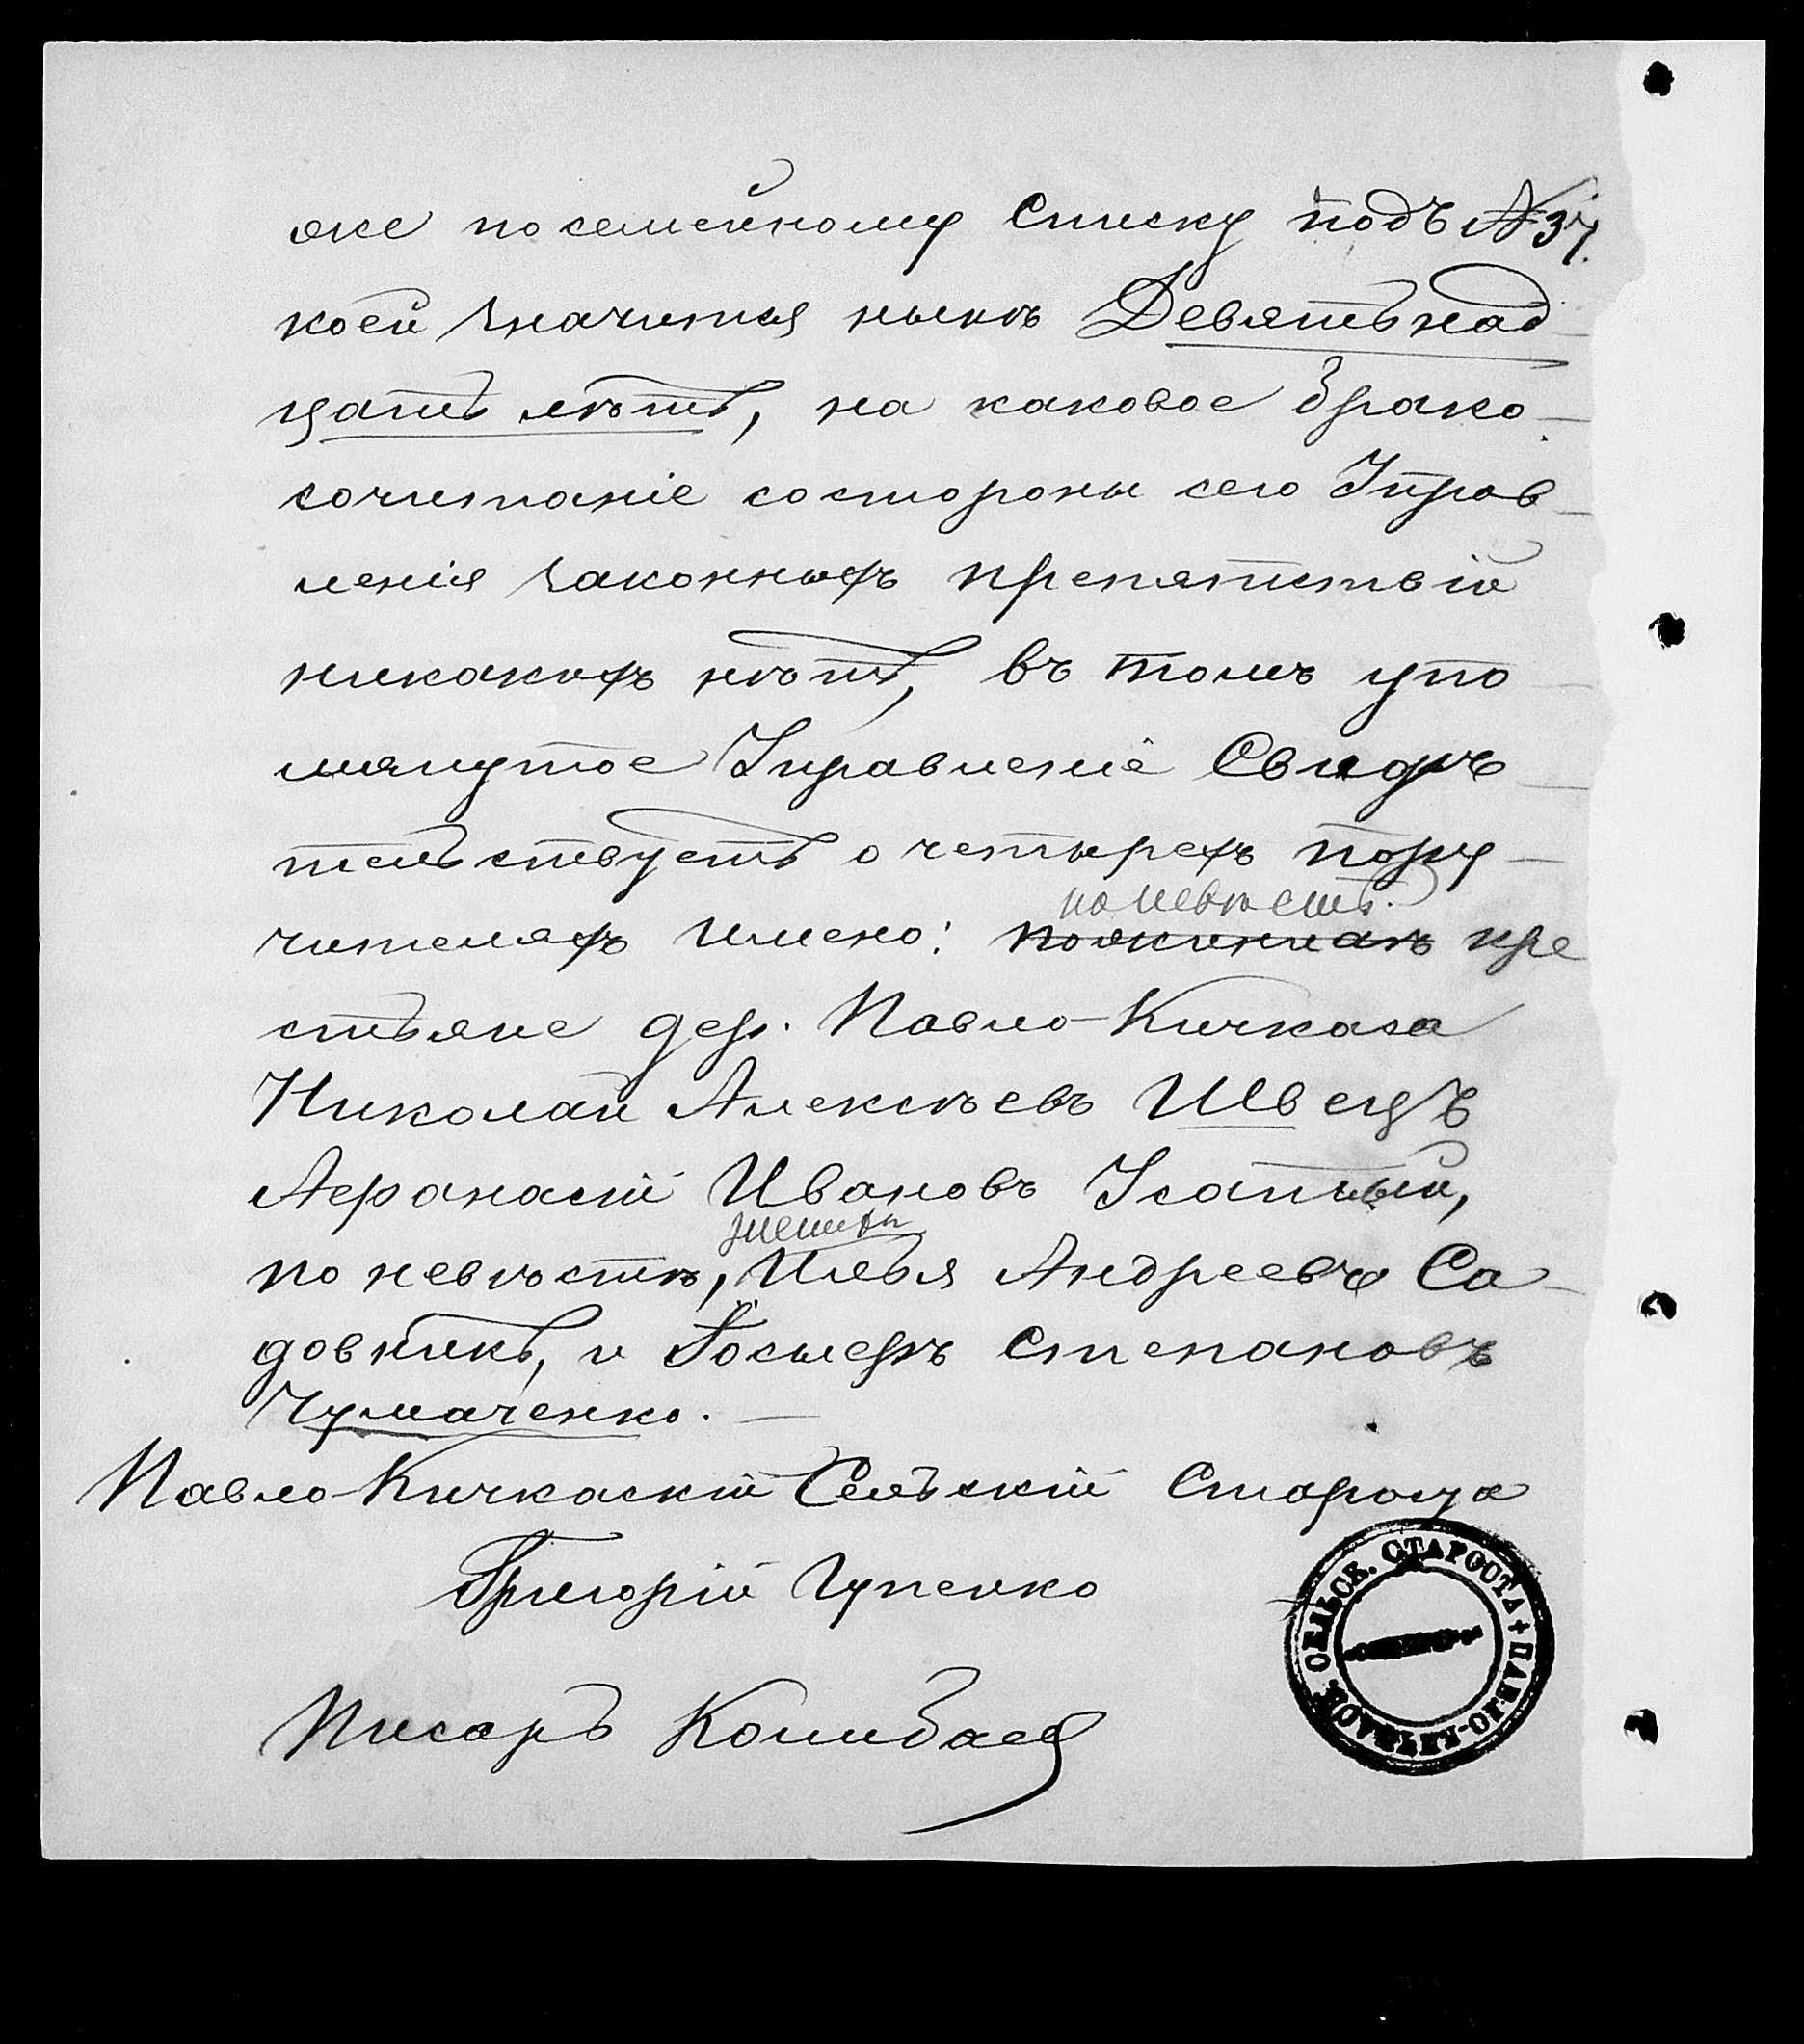 же посемейному списку подъ № 37.
коей значится нынѣ Девятьнад
цать лѣтъ, на каковое брако-
сочитаніе состороны сего Управ-
ленія законныхъ препятствій
никакихъ нѣтъ, въ томъ упо-
мянутое Управленіе Свидѣ-
тельствуетъ о четырехъ пору-
по невѣстѣ.
чителяхъ имено: кре
стьяне дер. Павло-Кичкаса
Николай Алексѣевъ Швецъ
Афанасій Ивановъ Усатый,
по невѣстѣ, Илья Андреевъ Са-
довникъ, и Степановъ
Чумаченко. —
Павло-Кичкаскій Сельскій Староста
Григорій Чупенко
Писарь
СЕЛЬСК. СТАРОСТА + ПАВЛО-КИЧКАСК.